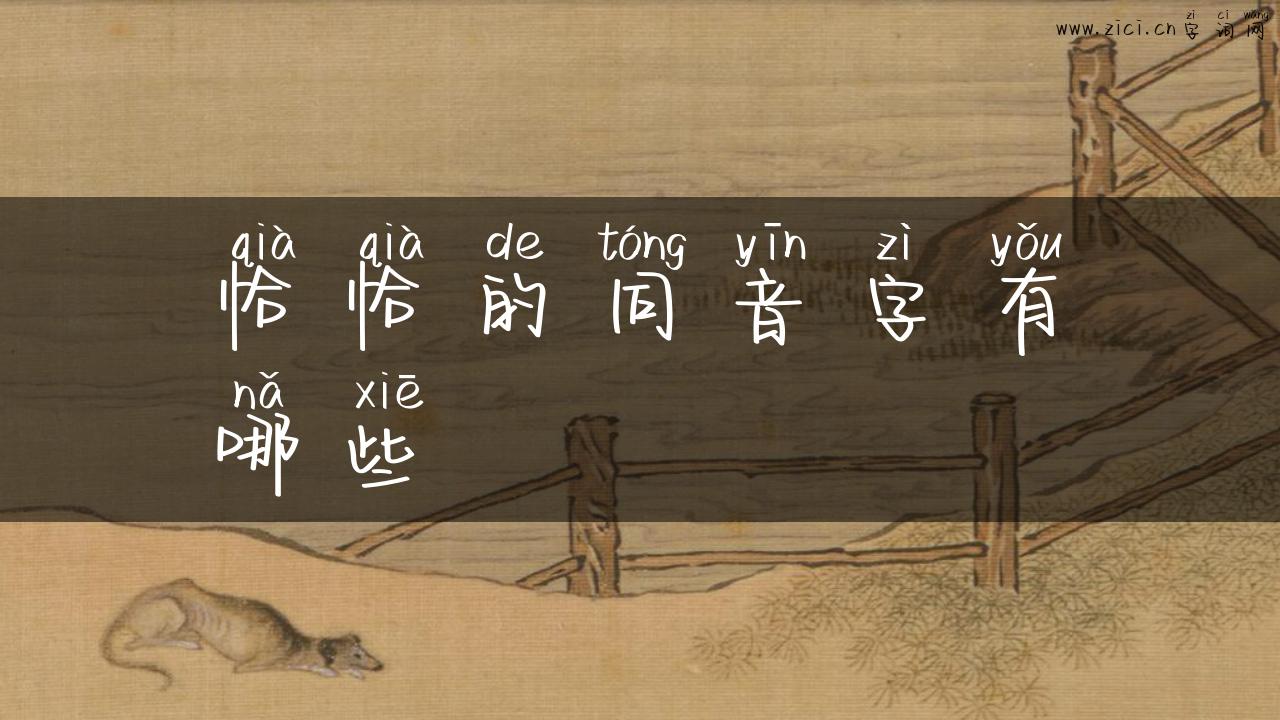 zì cí wǎng
www.zici.cn 字词网
qià qià de tóng yīn zì yǒu
恰恰的同音字有
nǎ xiē
哪些